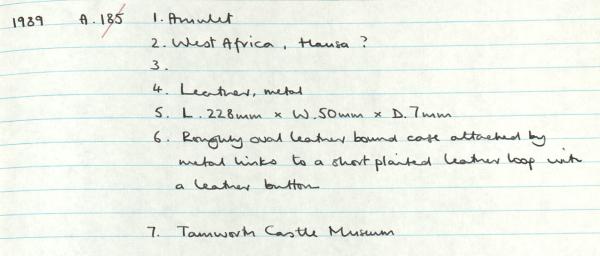 1989 A.185 1. Amulet
2. West Africa, Hausa ?
3.
4. Leather, metal
5. L. 228mm × W. 50mm × D. 7mm
6. Roughly oval leather bound case attached by
metal links to a short plaited leather loop with
a leather button
7. Tamworth Castle Museum